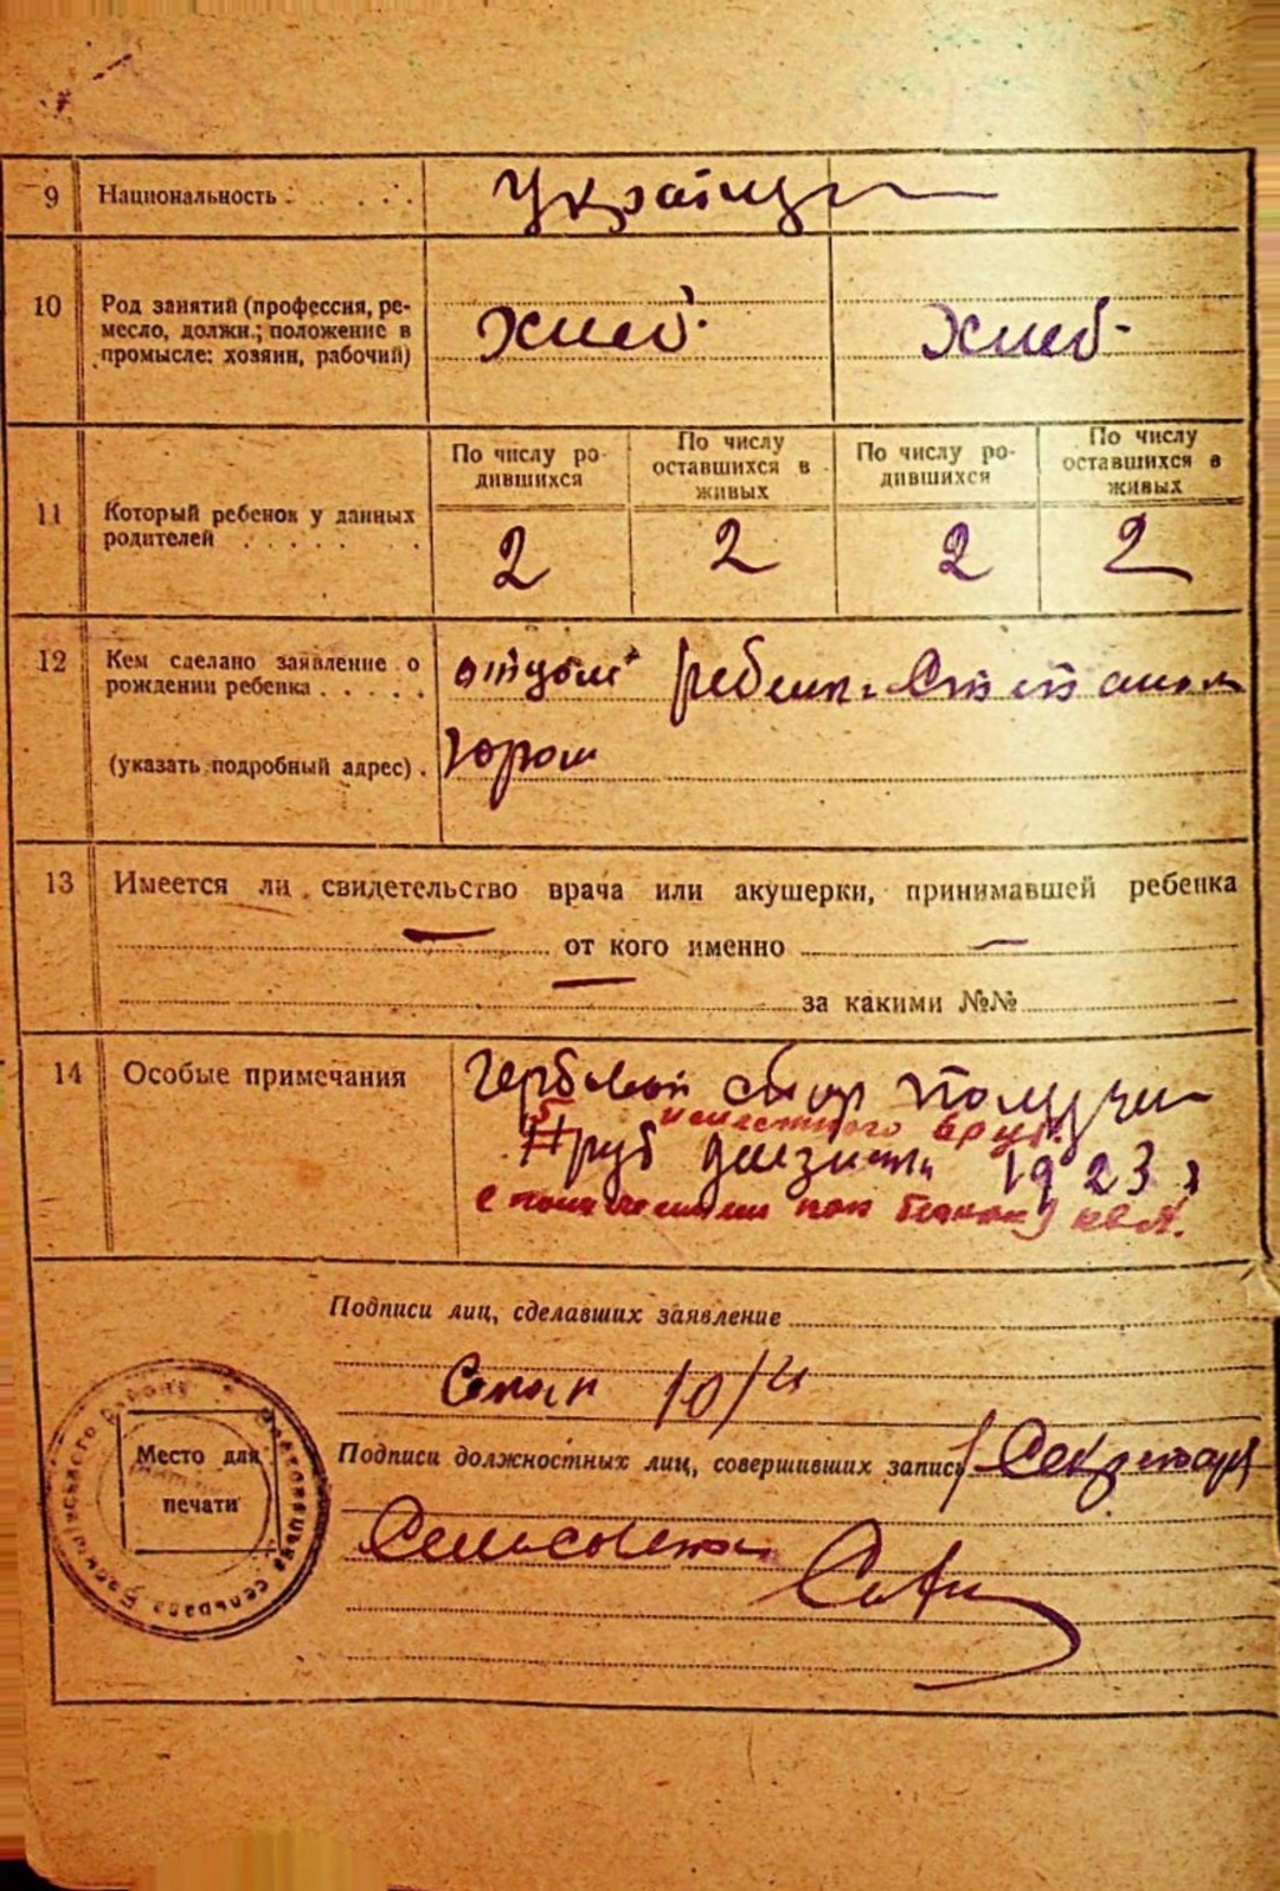 9 Национальность . . . . . Украинцы
10 Род занятий (профессия, ре-
месло, должн.; положение в
промысле: хозяин, рабочий)
хлеб. хлеб-
11 Который ребенок у данных
родителей . . . . . .
По числу ро-
дившихся
По числу
оставшихся в
живых
По числу ро-
дившихся
По числу
оставшихся в
живых
2 2 2 2
12 Кем сделано заявление о
рождении ребенка . . . . .
(указать подробный адрес) .
отцом ребенка Степаном
Юрош
13 Имеется ли свидетельство врача или акушерки, принимавшей ребенка
— от кого именно —
— за какими №№
14 Особые примечания
Гербовый сбор
руб 1923
Подписи лиц, сделавших заявление
Подписи должностных лиц, совершивших запись Секретарь
Сельсовета
Место для
печати